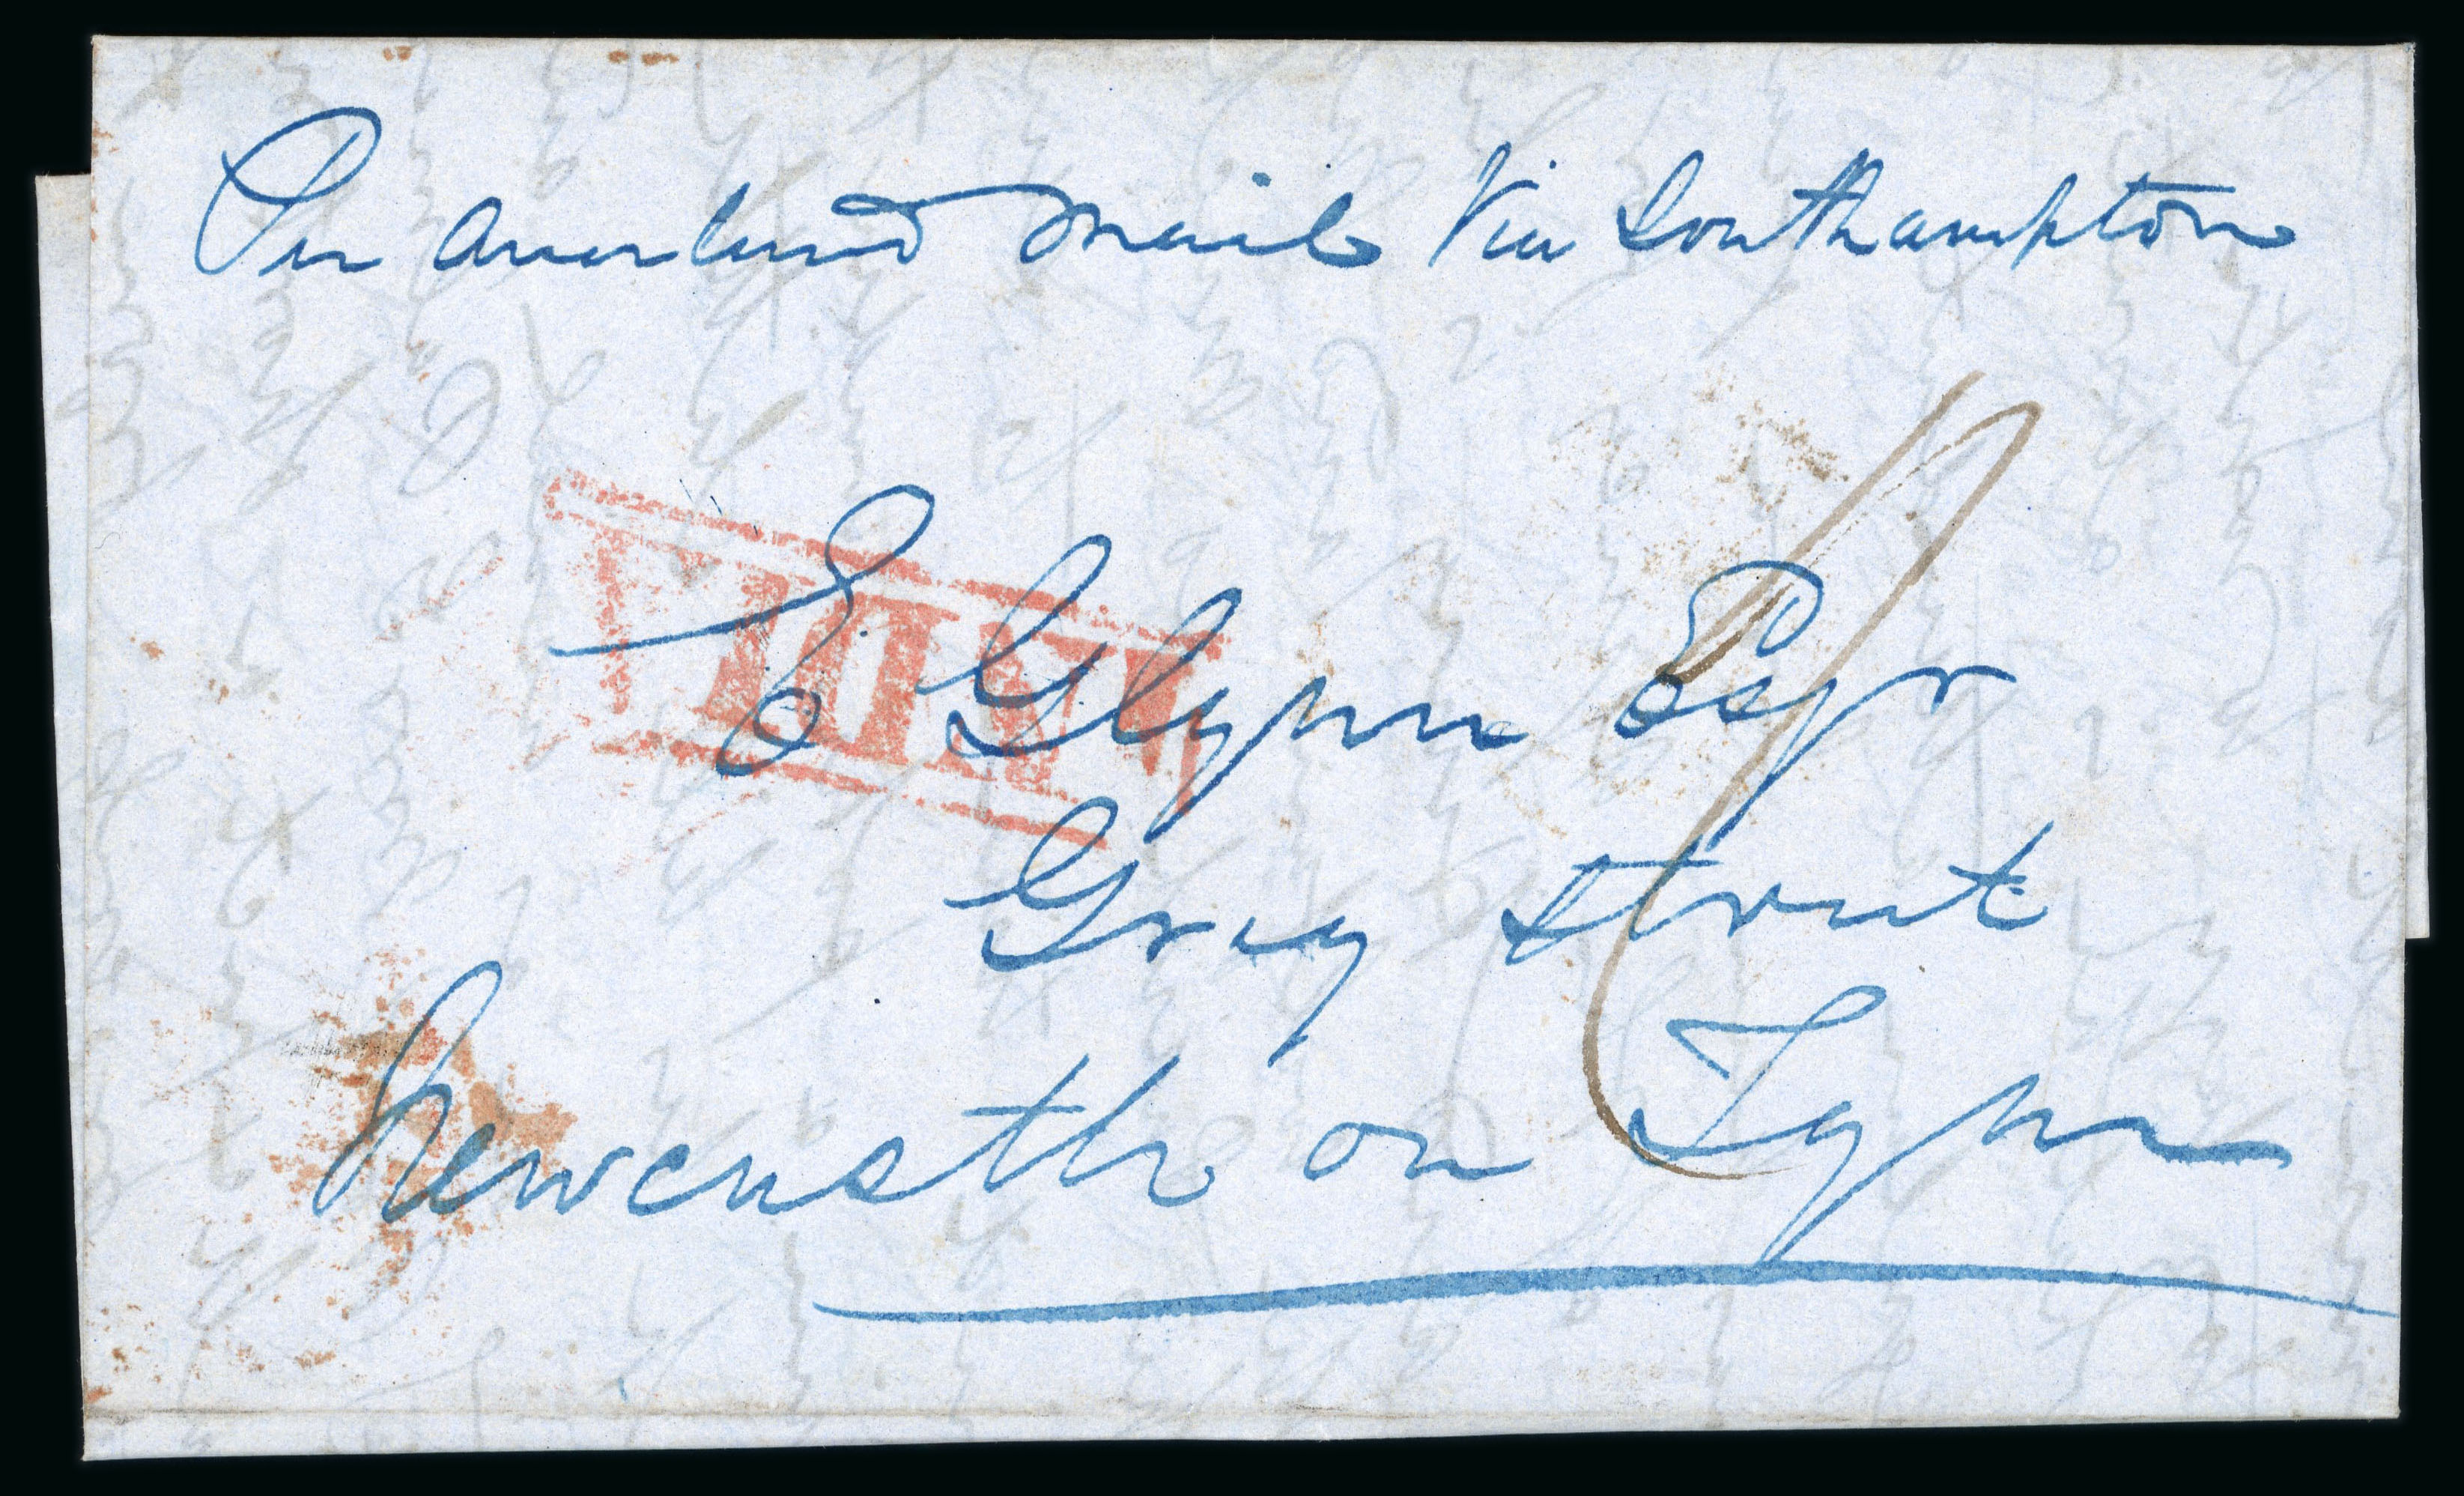 Per Overland Mail Via Southampton
E Glynn Esqr
Grey Street
Newcastle on Tyne